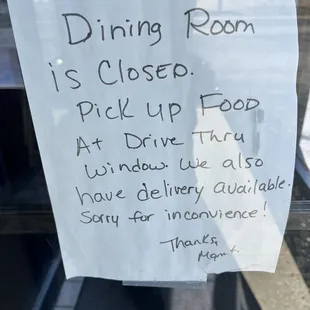 Dining Room
is Closed.
Pick up Food
At Drive Thru
window. We also
have delivery available.
Sorry for inconvience!
Thanks,
Mgmt.